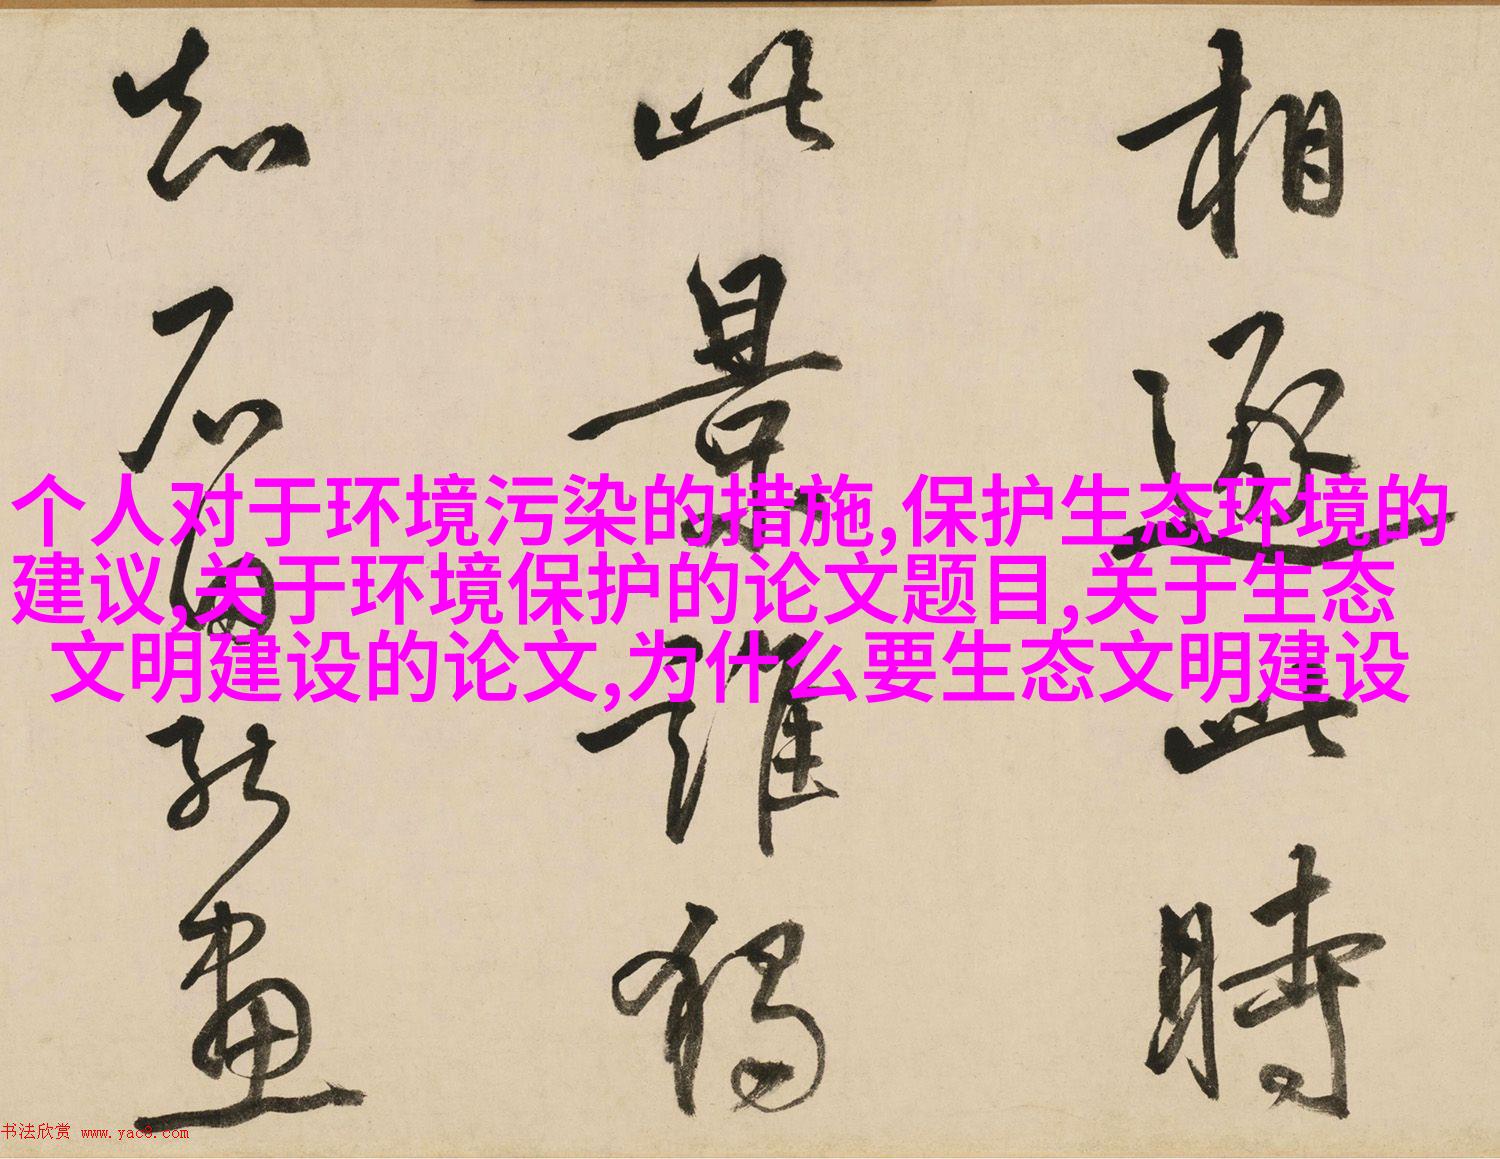 相逐此時
此景誰獨
知石能畫
个人对于环境污染的措施,保护生态环境的
建议,关于环境保护的论文题目,关于生态
文明建设的论文,为什么要生态文明建设
书法欣赏 www.yac8.com